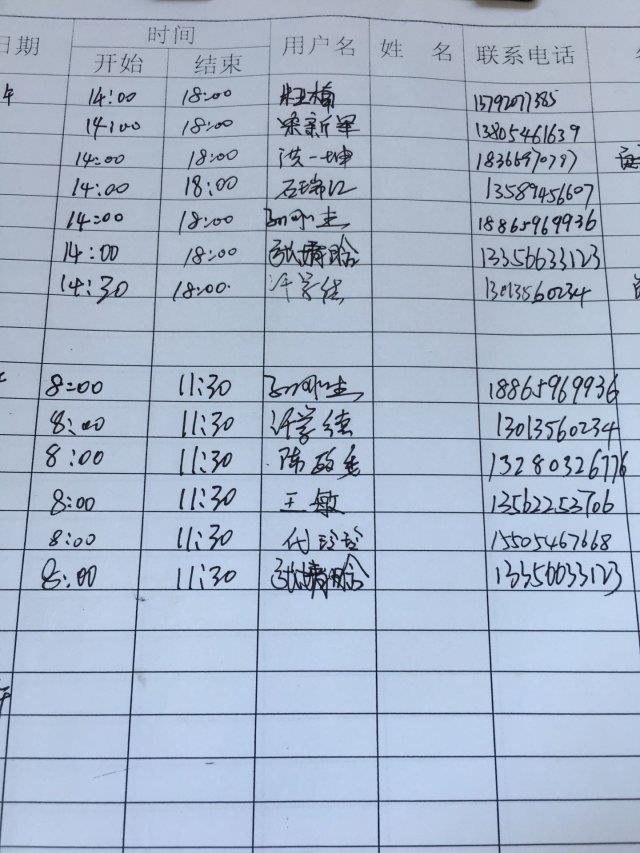 日期 时间 用户名 姓 名 联系电话
开始 结束
14:00 18:00 13792077385
14:00 18:00 梁新军 13805461639
14:00 18:00 洪一坤
14:00 18:00 石瑞江 13589456607
14:00 18:00 18865969936
14:00 18:00 13356633123
14:30 18:00 许学继 13013560234
8:00 11:30 18865969936
8:00 11:30 许学继 13013560234
8:00 11:30 陈政委 13280326776
8:00 11:30 王敏 13562253706
8:00 11:30 代玲玲 15505467668
8:00 11:30